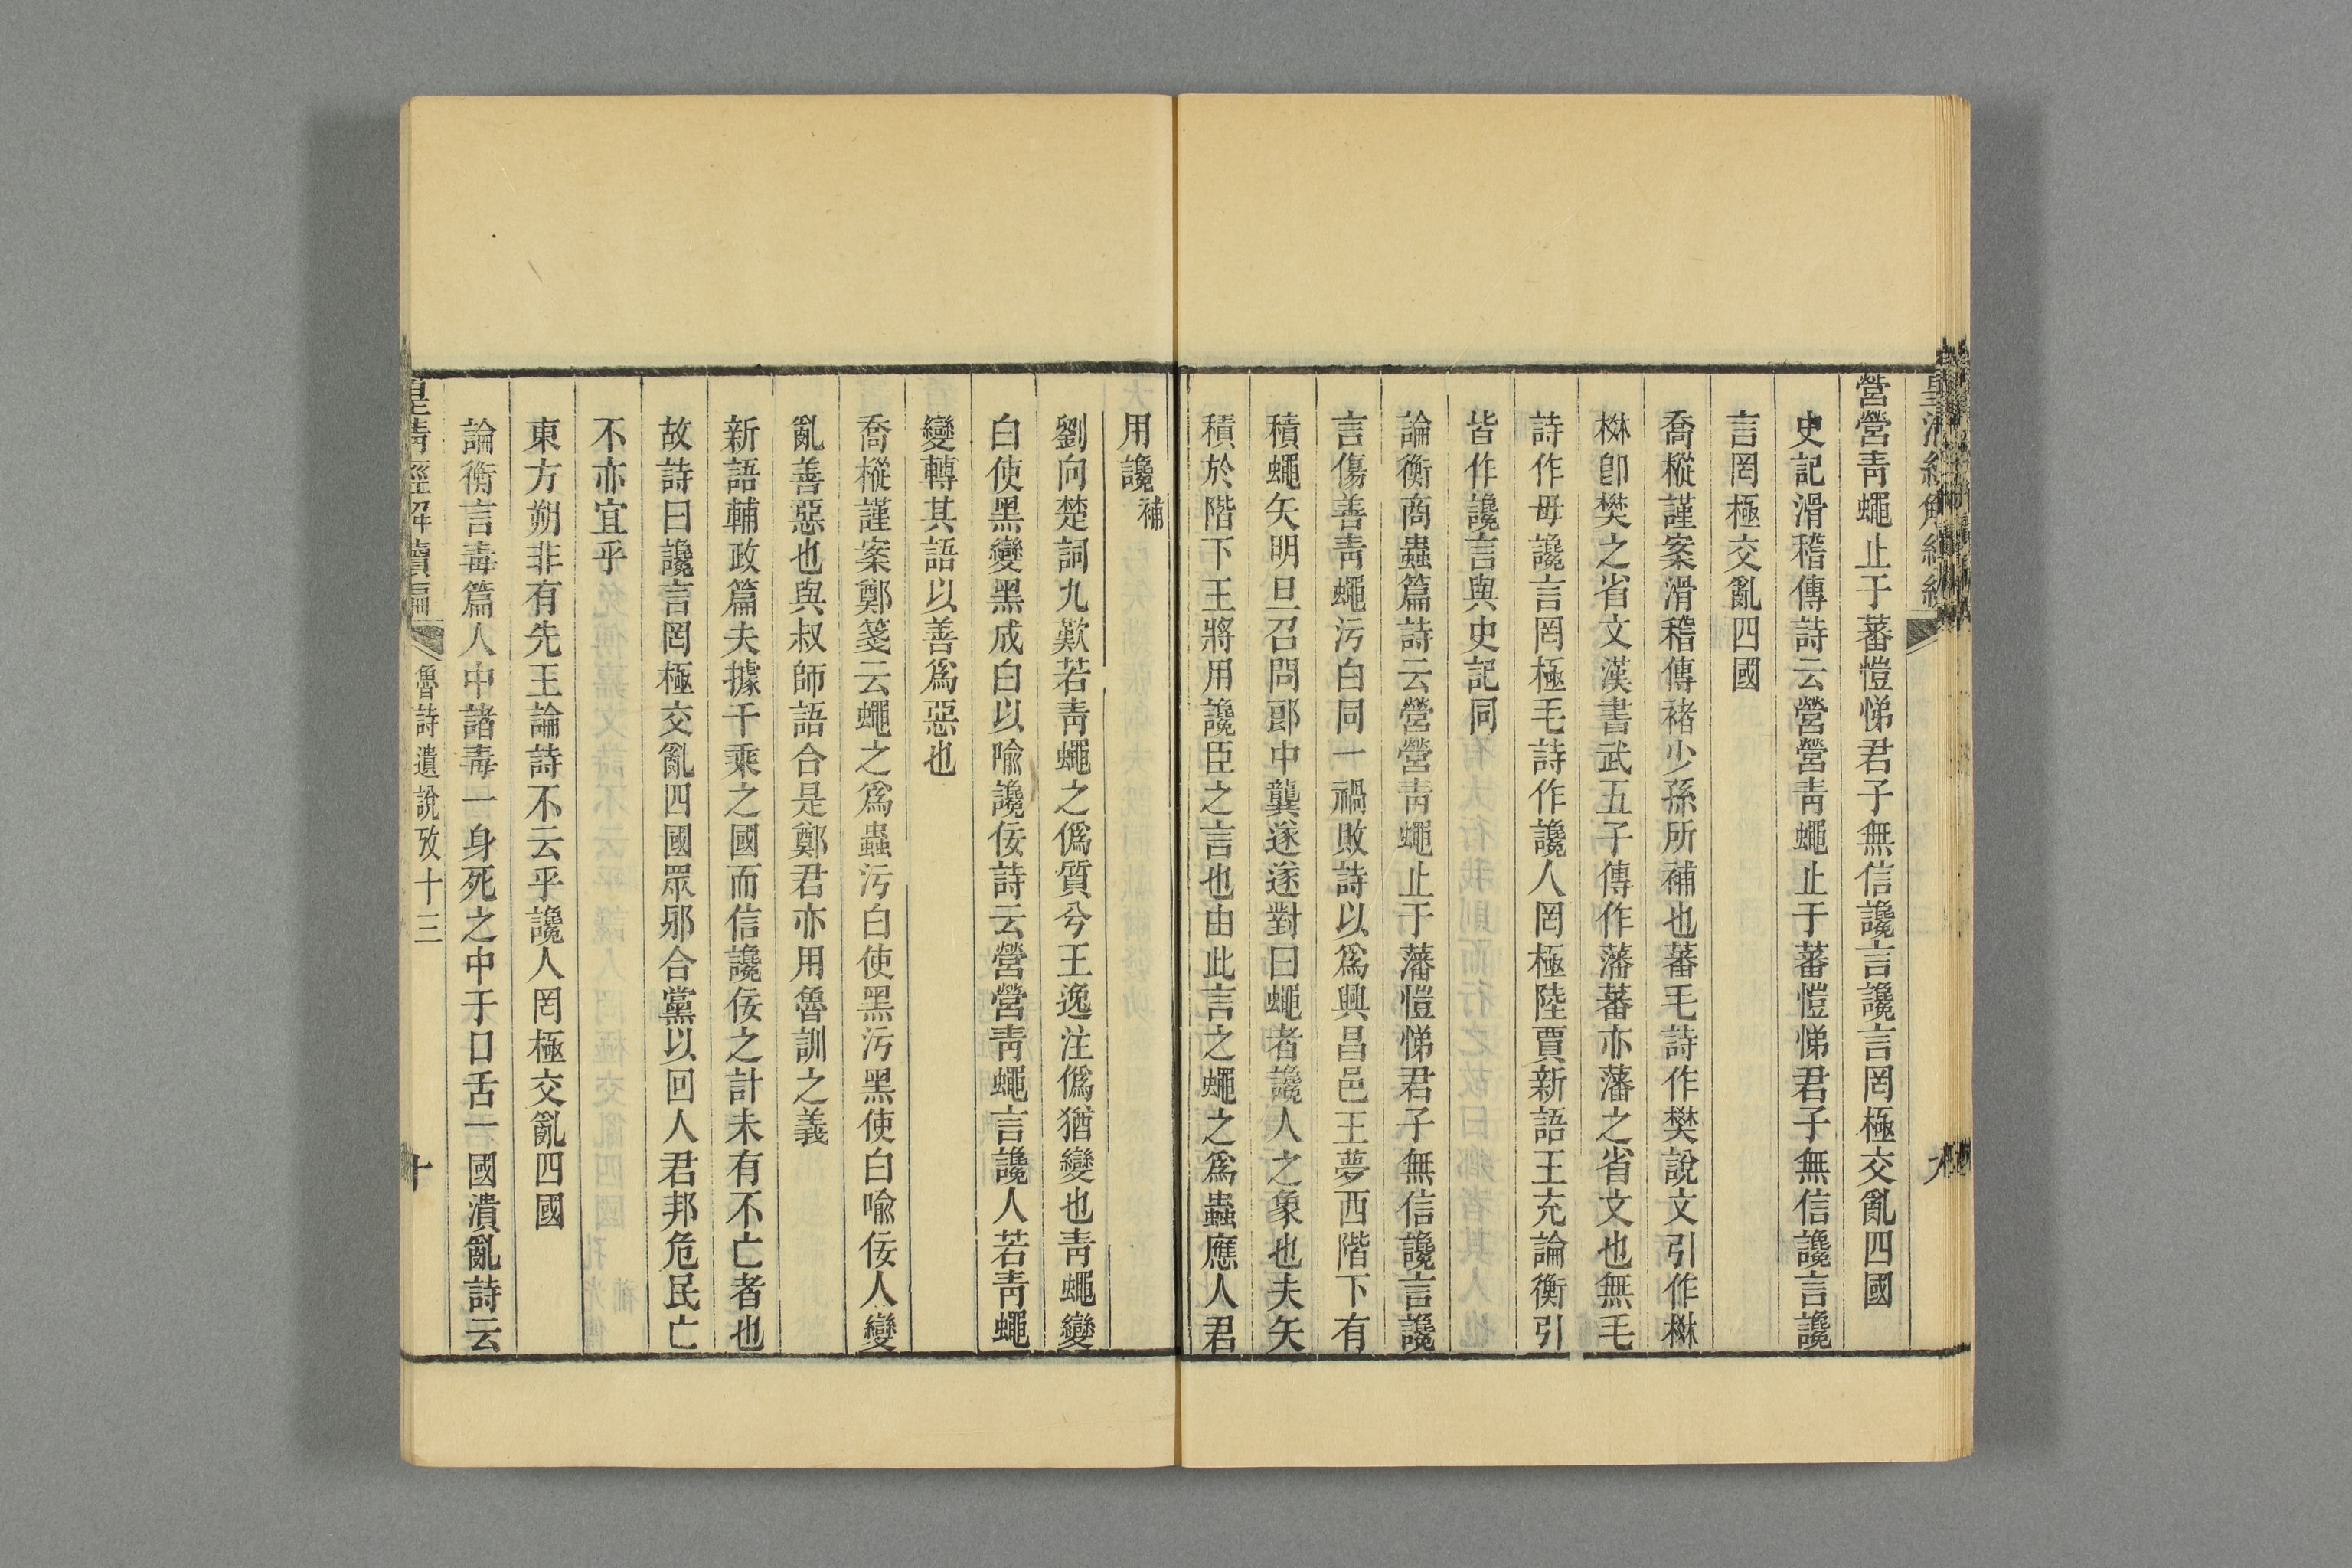 營營靑蠅止于蕃愷悌君子無信讒言讒言罔極交亂四國
史記滑稽傳詩云營營靑蠅止于蕃愷悌君子無信讒言讒
言罔極交亂四國
喬樅謹案滑稽傳褚少孫所補也蕃毛詩作樊說文引作棥
棥卽樊之省文漢書武五子傳作藩蕃亦藩之省文也無毛
詩作毋讒言罔極毛詩作讒人罔極陸賈新語王充論衡引
皆作讒言與史記同
論衡商蟲篇詩云營營靑蠅止于藩愷悌君子無信讒言讒
言傷善靑蠅污白同一禍敗詩以爲興昌邑王夢西階下有
積蠅矢明旦召問郎中龔遂遂對曰蠅者讒人之象也夫矢
積於階下王將用讒臣之言也由此言之蠅之爲蟲應人君
用讒補
劉向楚詞九歎若靑蠅之僞質兮王逸注僞猶變也靑蠅變
白使黑變黑成白以喩讒佞詩云營營靑蠅言讒人若靑蠅
變轉其語以善爲惡也
喬樅謹案鄭箋云蠅之爲蟲污白使黑污黑使白喩佞人變
亂善惡也與叔師語合是鄭君亦用魯訓之義
新語輔政篇夫據千乘之國而信讒佞之計未有不亡者也
故詩曰讒言罔極交亂四國眾邪合黨以回人君邦危民亡
不亦宜乎
東方朔非有先王論詩不云乎讒人罔極交亂四國
論衡言毒篇人中諸毒一身死之中于口舌一國潰亂詩云
皇淸經解續編
魯詩遺說攷十三
十